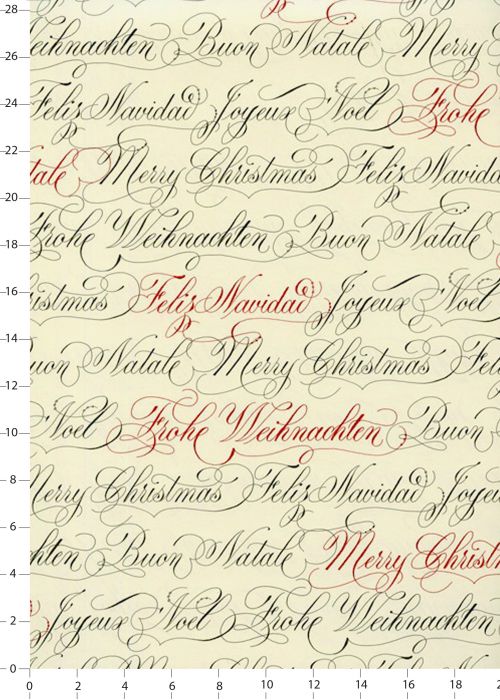 28
eihnachten Buon Natale Merry
26
24
Feliz Navidad Joyeux Noel Frohe
22
tale Merry Christmas Feliz Navida
20
Frohe Weihnachten Buon Natale
18
16
istmas Feliz Navidad Joyeux Noel
14
uon Natale Merry Christmas Feliz
12
Noel Frohe Weihnachten Buon
10
8
Merry Christmas Feliz Navidad Joyeu
6
hten Buon Natale Merry Christm
4
Joyeux Noel Frohe Weihnachten
2
0
0 2 4 6 8 10 12 14 16 18